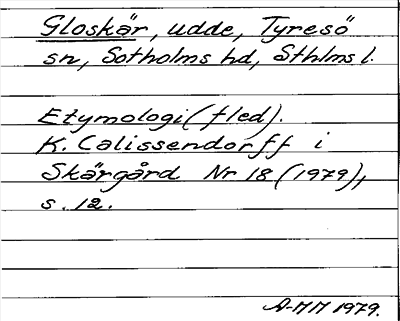 Gloskär, udde, Tyresö
sn, Sotholms hd, Sthlms l.
Etymologi (fled).
K. Calissendorff i
Skärgård Nr 18 (1979),
s. 12.
A-MM 1979.